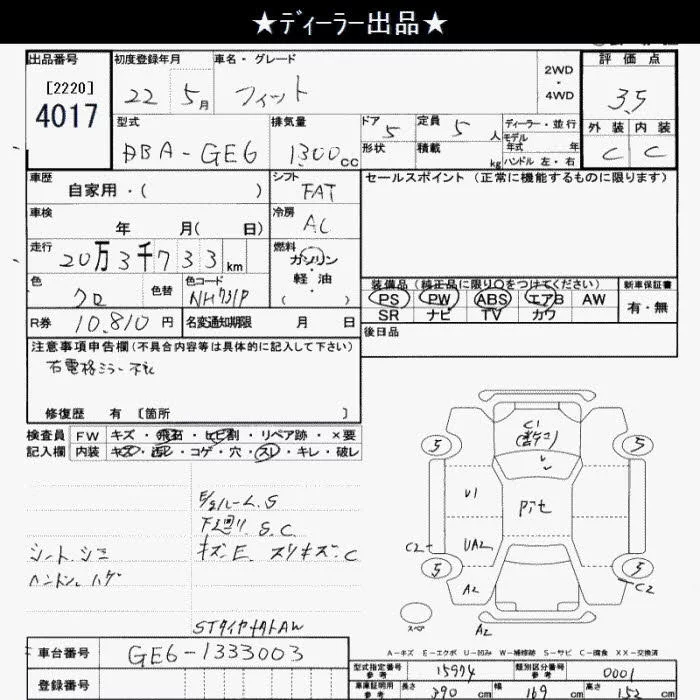 ★ディーラー出品★
出品番号
[2220]
4017
初度登録年月
22 5月
車名・グレード
フィット
2WD
・
4WD
評価点
3.5
外装 内装
C C
型式
DBA-GE6
排気量
1300cc
ドア 5
形状
定員 5人
積載 kg
ディーラー・並行
モデル
年式 年
ハンドル 左・右
車歴
自家用・( )
シフト
FAT
セールスポイント(正常に機能するものに限ります)
車検
年 月( 日)
冷房
AC
走行
20万3千733km
燃料
ガソリン
・
軽油
( )
色
クロ
色替
色コード
NH731P
装備品(純正品に限り○をつけてください)
PS PW ABS エアB AW
SR ナビ TV カワ
新車保証書
有・無
R券 10,810円
名変通知期限 月 日
後日品
注意事項申告欄(不具合内容等は具体的に記入して下さい)
右電格ミラー不良
修復歴 有〔箇所 〕
検査員
記入欄
FW キズ・飛石・ヒビ割・リペア跡・×要
内装 キズ・汚れ・コゲ・穴・スレ・キレ・破レ
E/gルームS
下廻り S.C.
シートシミ
キズ.E. スリキズ.C
STタイヤ ナットAW
C1
5
5
U1
C2
UA2
5
A2
5
C2
スペア
A2
A-キズ E-エクボ U-凹み W-補修跡 S-サビ C-腐食 XX-交換済
車台番号
GE6-1333003
登録番号
型式指定番号
参考
15974
類別区分番号
参考
0001
車庫証明用
参考
長さ 390 cm
幅 169 cm
高さ 152 cm